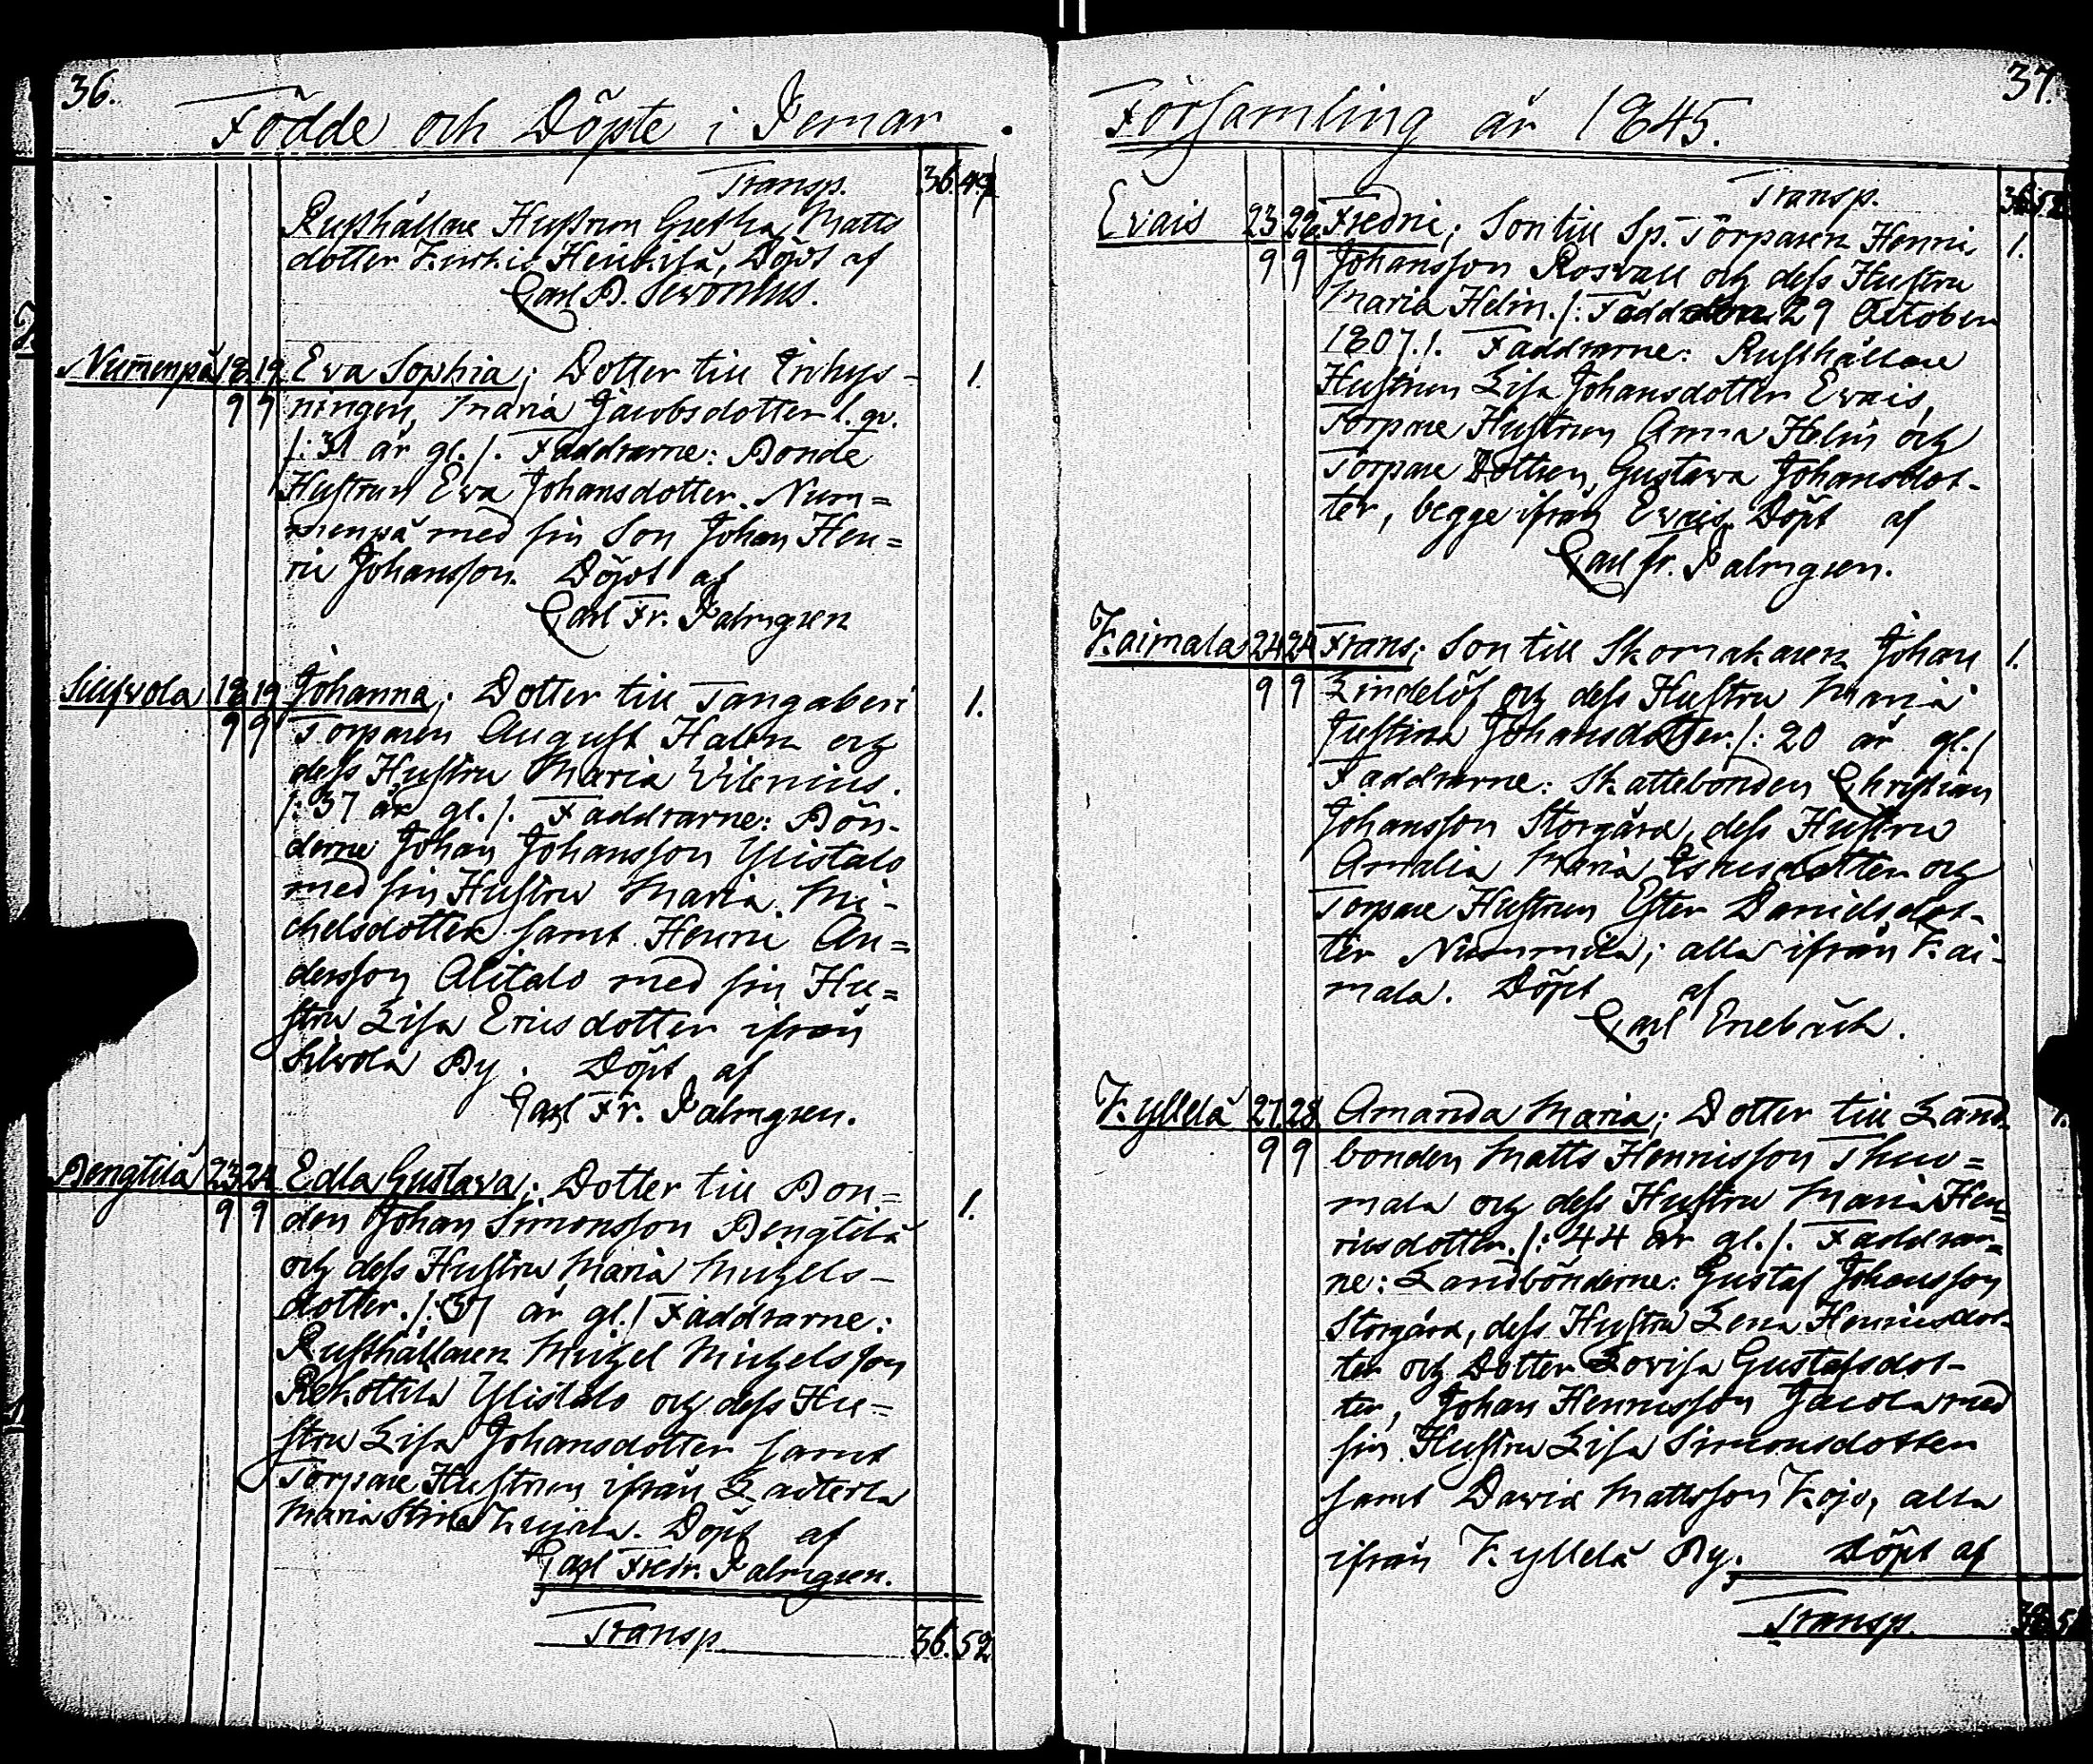 36.
Födde och Döpte i Pemar
Transp. 36. 49
Rusthållare Hustrun Gretha Matts
dotter Heikkilä, Döpt af
Carl B.
Nummenpä 18 19 Eva Sophia; Dotter till Inhys- 1.
9 9 ningen, Maria Jacobsdotter l. qv.
/: 31 år gl. /. Faddrarne: Bonde
Hustrun Eva Johansdotter Num=
menpä med sin Son Johan Hen=
ric Johansson. Döpt af
Carl Fr. Palmgren
18 19 Johanna; Dotter till Tangaberi 1.
9 9 Torparen August Halin och
dess Hustru Maria Wilenius.
/: 37 år gl. /. Faddrarne: Bön-
derne Johan Johansson Ylistalo
med sin Hustru Maria Mi-
chelsdotter samt Henric An=
dersson Alitalo med sin Hu=
stru Lisa Ericsdotter ifrån
Silvola By. Döpt af
Carl Fr. Palmgren.
Bengtilä 23 24 Edla Gustava; Dotter till Bon= 1.
9 9 den Johan Simonsson Bengtilä
och dess Hustru Maria Michels-
dotter. /: 37 år gl. / Faddrarne:
Rusthållaren Michel Michelsson
Rekottila Ylistalo och dess Hu=
stru Lisa Johansdotter samt
Torpare Hustrun ifrån
Maria Stina Döpt af
Carl Fredr. Palmgren.
Transp 36. 52
37.
Församling år 1845.
Transp. 36. 52
Evais 23 26 Fredric; Son till Sp. Torparen Henric 1.
9 9 Johansson Rosvall och dess Hustru
Maria Helin. /: Född den 29 October
1807. /. Faddrarne: Rusthållare
Hustrun Lisa Johansdotter Evais,
Torpare Hustrun Anna Helin och
Torpare Dottren, Gustava Johansdot-
ter, begge ifrån Evais. Döpt af
Carl Fr. Palmgren.
Kaimala 24 24 Frans; Son till Skomakaren Johan 1.
9 9 Lindelöf och dess Hustru Maria
Justina Johansdotter. /: 20 år gl. /
Faddrarne: Skattebonden Christian
Johansson Storgård, dess Hustru
Amalia Maria och
Torpare Hustrun Ester Danielsdot-
ter Nummila; alla ifrån Kai-
mala. Döpt af
Carl Enebäck.
Kyllelä 27. 28. Amanda Maria; Dotter till Land- 1.
9 9 bonden Matts Henricsson
mala och dess Hustru Maria Hen=
ricsdotter. /: 44 år gl. /. Faddrar=
ne: Landbönderne: Gustaf Johansson
Storgård, dess Hustru Lena Henricsdot-
ter och Dotter Lovisa Gustafsdot-
ter, Johan Henricsson Jacola med
sin Hustru Lisa Simonsdotter
samt David Mattsson Kojo, alla
ifrån Kyllelä By. Döpt af
Transp.